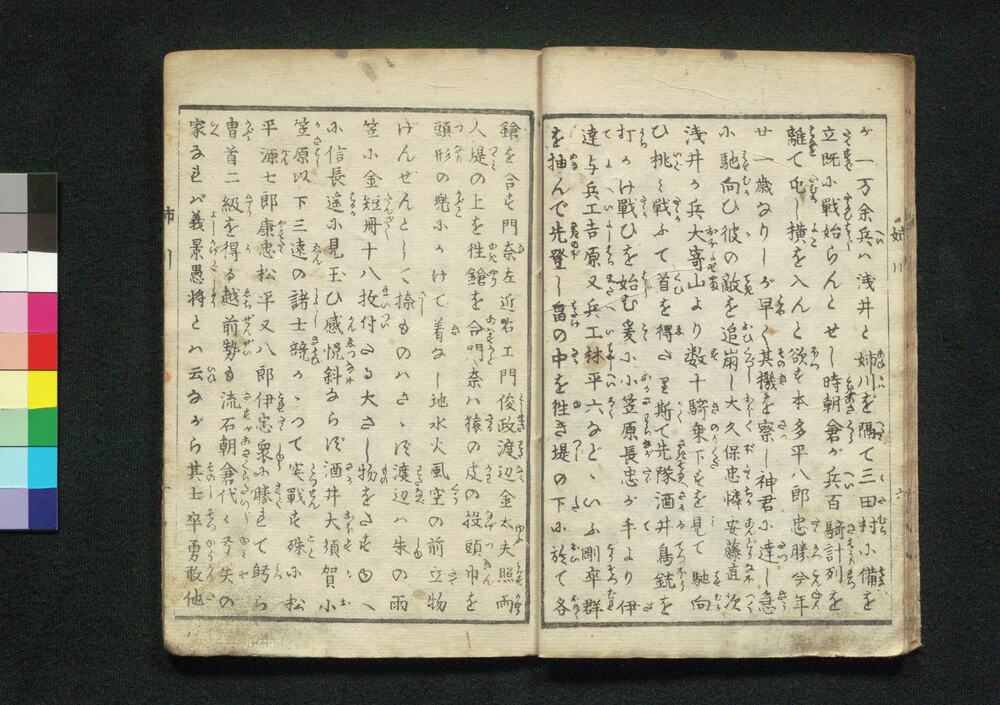 が一万余兵ハ浅井と姉川を隔て三田村小備を
立既小戦始らんとせし時朝倉が兵百騎計列を
離て屯し横を入んと欲を本多平八郎忠勝今年
廿一歳なりしが早く其機を察し神君小達し急
小馳向ひ彼の敵を追崩し大久保忠隣安藤直次
浅井が兵大寄山より数十騎乗下を見て馳向
ひ挑ミ戦ふて首を得さ里斯て先隊酒井鳥銃を
打かけ戦ひを始む爰小小笠原長忠が手より伊
達与兵エ吉原又兵エ林平六などゝいふ剛卒群
を抽んで先登し畠の中を徃き堤の下小於て各
鎗を合も門奈左近右エ門俊政渡辺金太夫照両
人堤の上を徃鎗を合門奈ハ猿の皮の投頭巾を
頭形の兜小かけて着なし地水火風空の前立物
げんせんとして捺ものハさゝ渡辺ハ朱の雨
笠小金短冊十八枚付さる大さし物をさも
小信長遥小見玉ひ感悦斜ならだ酒井大須賀小
笠原以下三遠の諸士競かゝつて実戦も殊小松
平源七郎康忠松平又八郎伊忠衆小勝まて誇ら
曽首二級を得る越前勢も流石朝倉代々弓矢の
家なれバ義景愚将とハ云ながら其士卒勇敢他
姉川
六
姉川